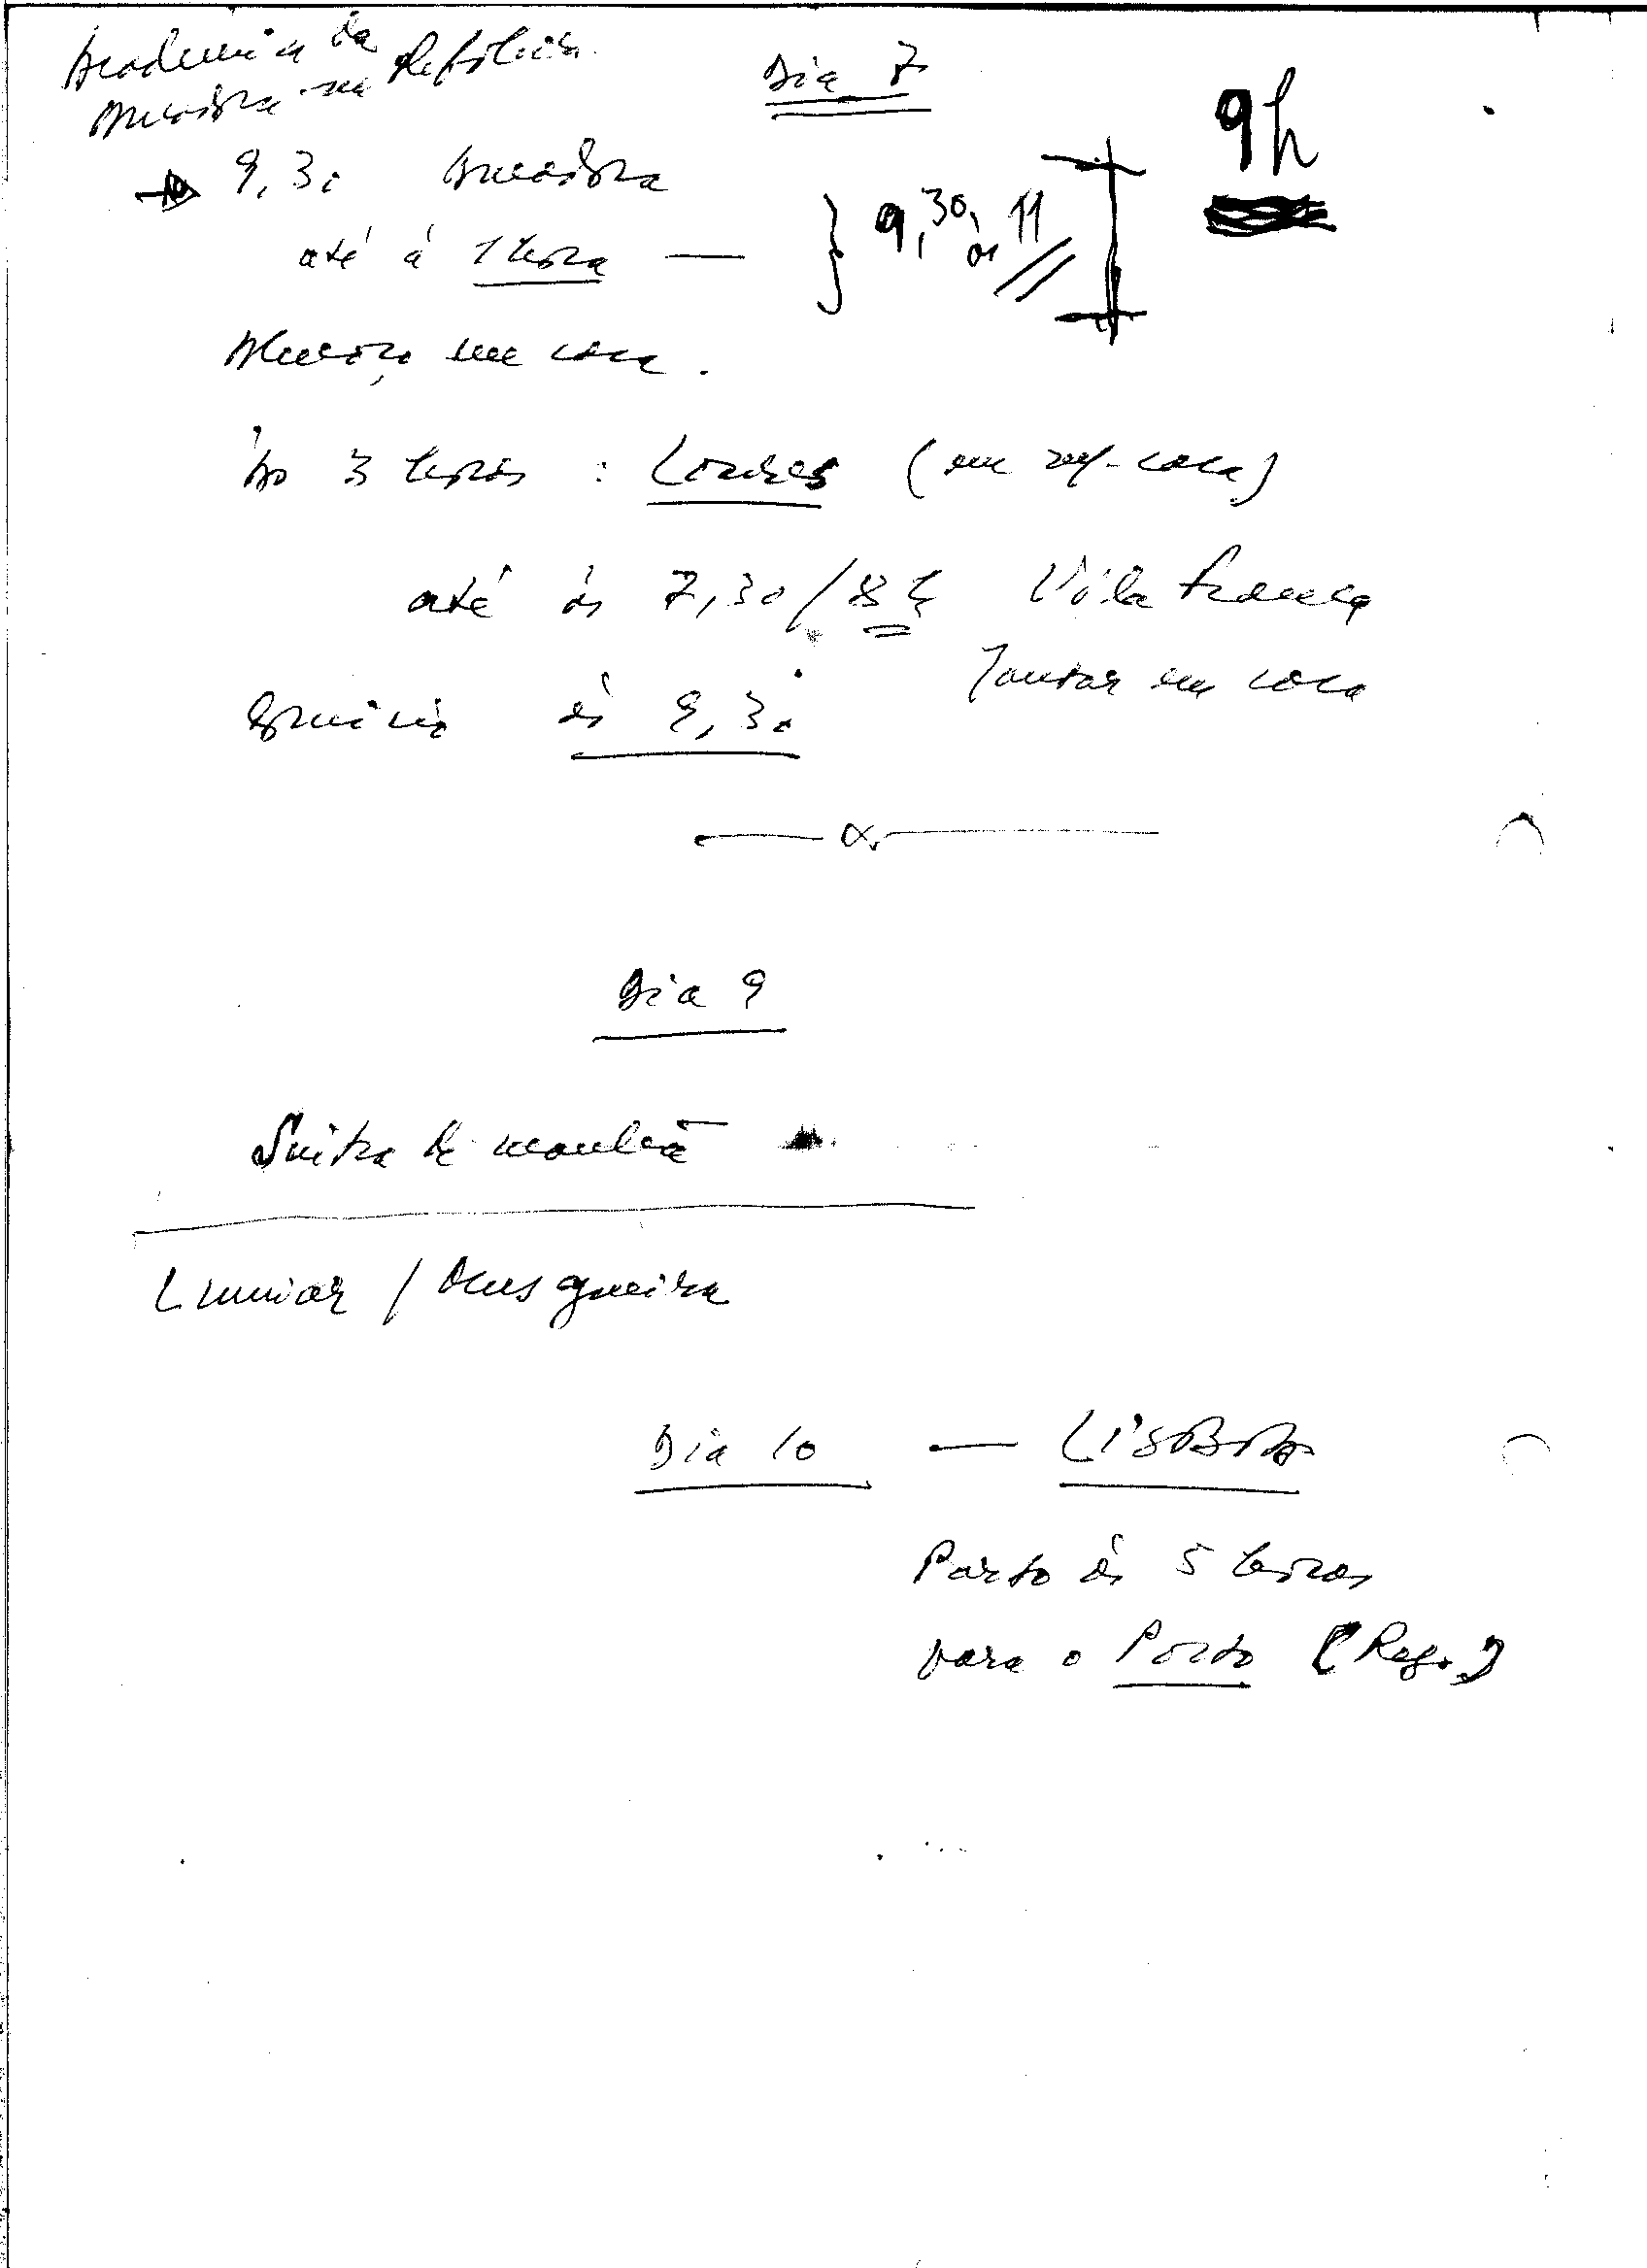 Academia da
Amadora na Refóliea
Dia 7
9h
9,30 Amadora
9,30 às 11
até á 1 hora —
Almoço em casa.
Às 3 horas : Loures (em casa)
até às 7,30/8h Vila Franca
Jantar em casa
Comício às 9,30
Dia 9
Sintra de manhã
Lumiar / Musgueira
Dia 10 — LISBOA
Parto às 5 horas
para o Porto (Reg.)